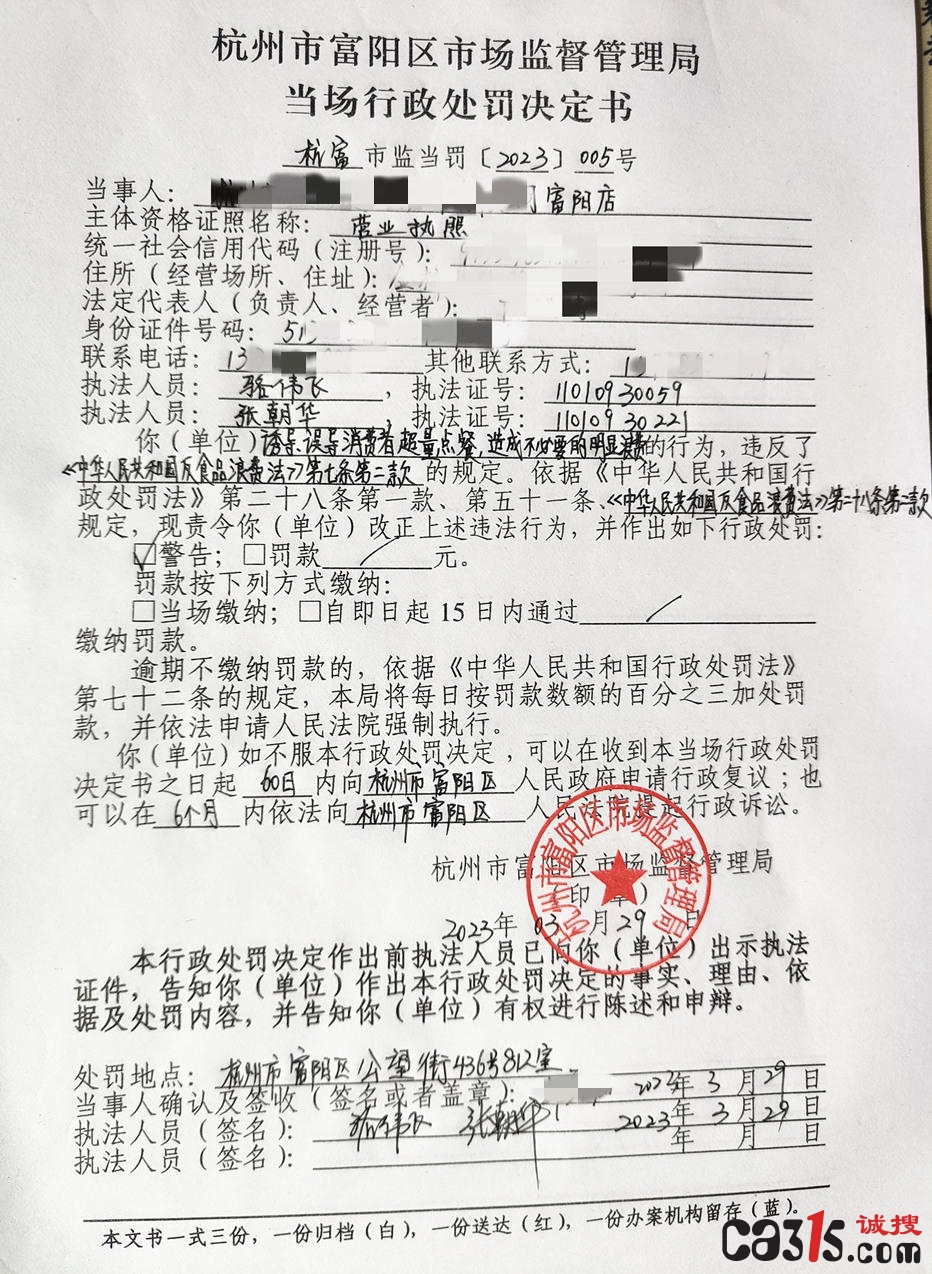 杭州市富阳区市场监督管理局
当场行政处罚决定书
杭富市监当罚〔2023〕005号
当事人：富阳店
主体资格证照名称：营业执照
统一社会信用代码（注册号）：
住所（经营场所、住址）：
法定代表人（负责人、经营者）：
身份证件号码：51
联系电话：13 其他联系方式：1
执法人员：骆伟飞，执法证号：11010930059
执法人员：张朝华，执法证号：11010930221
你（单位）诱导、误导消费者超量点餐，造成不必要的明显浪费的行为，违反了
《中华人民共和国反食品浪费法》第七条第二款的规定。依据《中华人民共和国行
政处罚法》第二十八条第一款、第五十一条、《中华人民共和国反食品浪费法》第二十八条第二款
规定，现责令你（单位）改正上述违法行为，并作出如下行政处罚：
☑警告；□罚款／元。
罚款按下列方式缴纳：
□当场缴纳；□自即日起15日内通过／
缴纳罚款。
逾期不缴纳罚款的，依据《中华人民共和国行政处罚法》
第七十二条的规定，本局将每日按罚款数额的百分之三加处罚
款，并依法申请人民法院强制执行。
你（单位）如不服本行政处罚决定，可以在收到本当场行政处罚
决定书之日起60日内向杭州市富阳区人民政府申请行政复议；也
可以在6个月内依法向杭州市富阳区人民法院提起行政诉讼。
杭州市富阳区市场监督管理局
（印章）
杭州市富阳区市场监督管理局
2023年03月29日
本行政处罚决定作出前执法人员已向你（单位）出示执法
证件，告知你（单位）作出本行政处罚决定的事实、理由、依
据及处罚内容，并告知你（单位）有权进行陈述和申辩。
处罚地点：杭州市富阳区公望街436号812室
当事人确认及签收（签名或者盖章）：2023年3月29日
执法人员（签名）：骆伟飞 张朝华 2023年3月29日
执法人员（签名）：年 月 日
本文书一式三份，一份归档（白），一份送达（红），一份办案机构留存（蓝）。
ca315诚搜.com